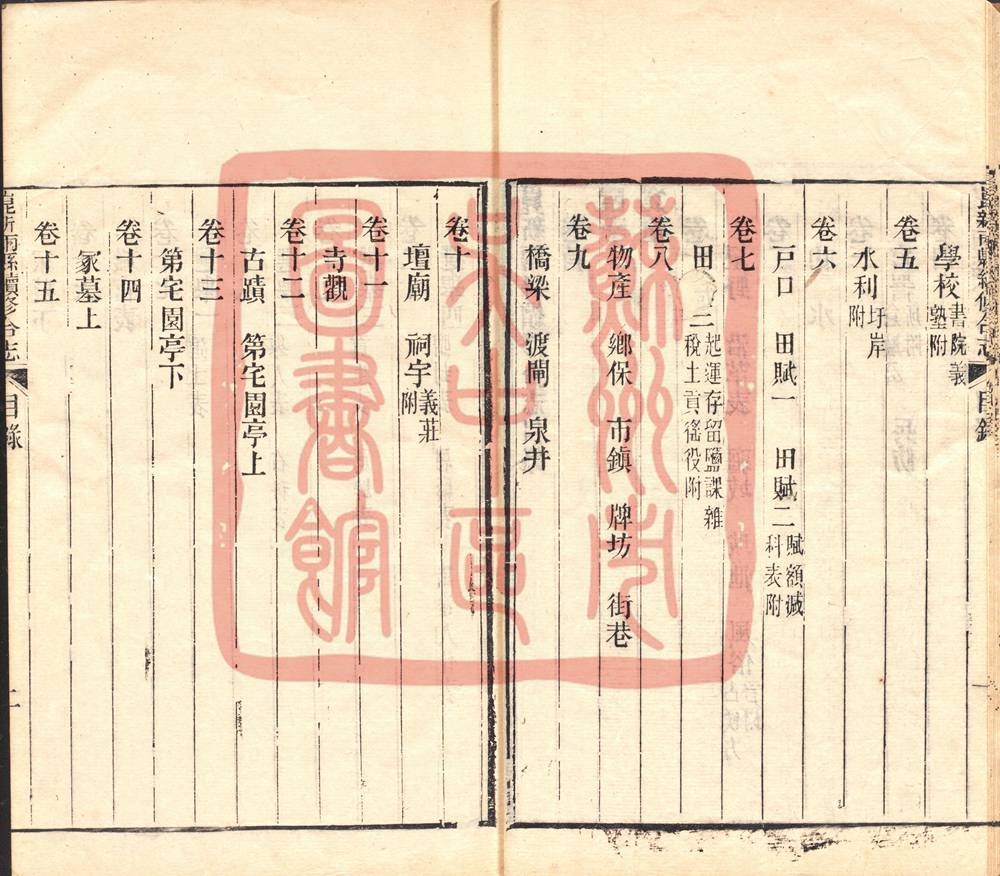 昆新兩縣續修合志 目錄
學校 書院義塾附
卷五
水利 圩岸附
卷六
戶口 田賦一 田賦二 賦額減科表附
卷七
田 三 起運存留鹽課雜稅土貢徭役附
卷八
物產 鄉保 市鎮 牌坊 街巷
卷九
橋梁 渡閘 泉井
卷十
壇廟 祠宇 義莊附
卷十一
寺觀
卷十二
古蹟 第宅園亭上
卷十三
第宅園亭下
卷十四
冢墓上
卷十五
昆新兩縣續修合志 目錄
蘇州市
吳中區
圖書館